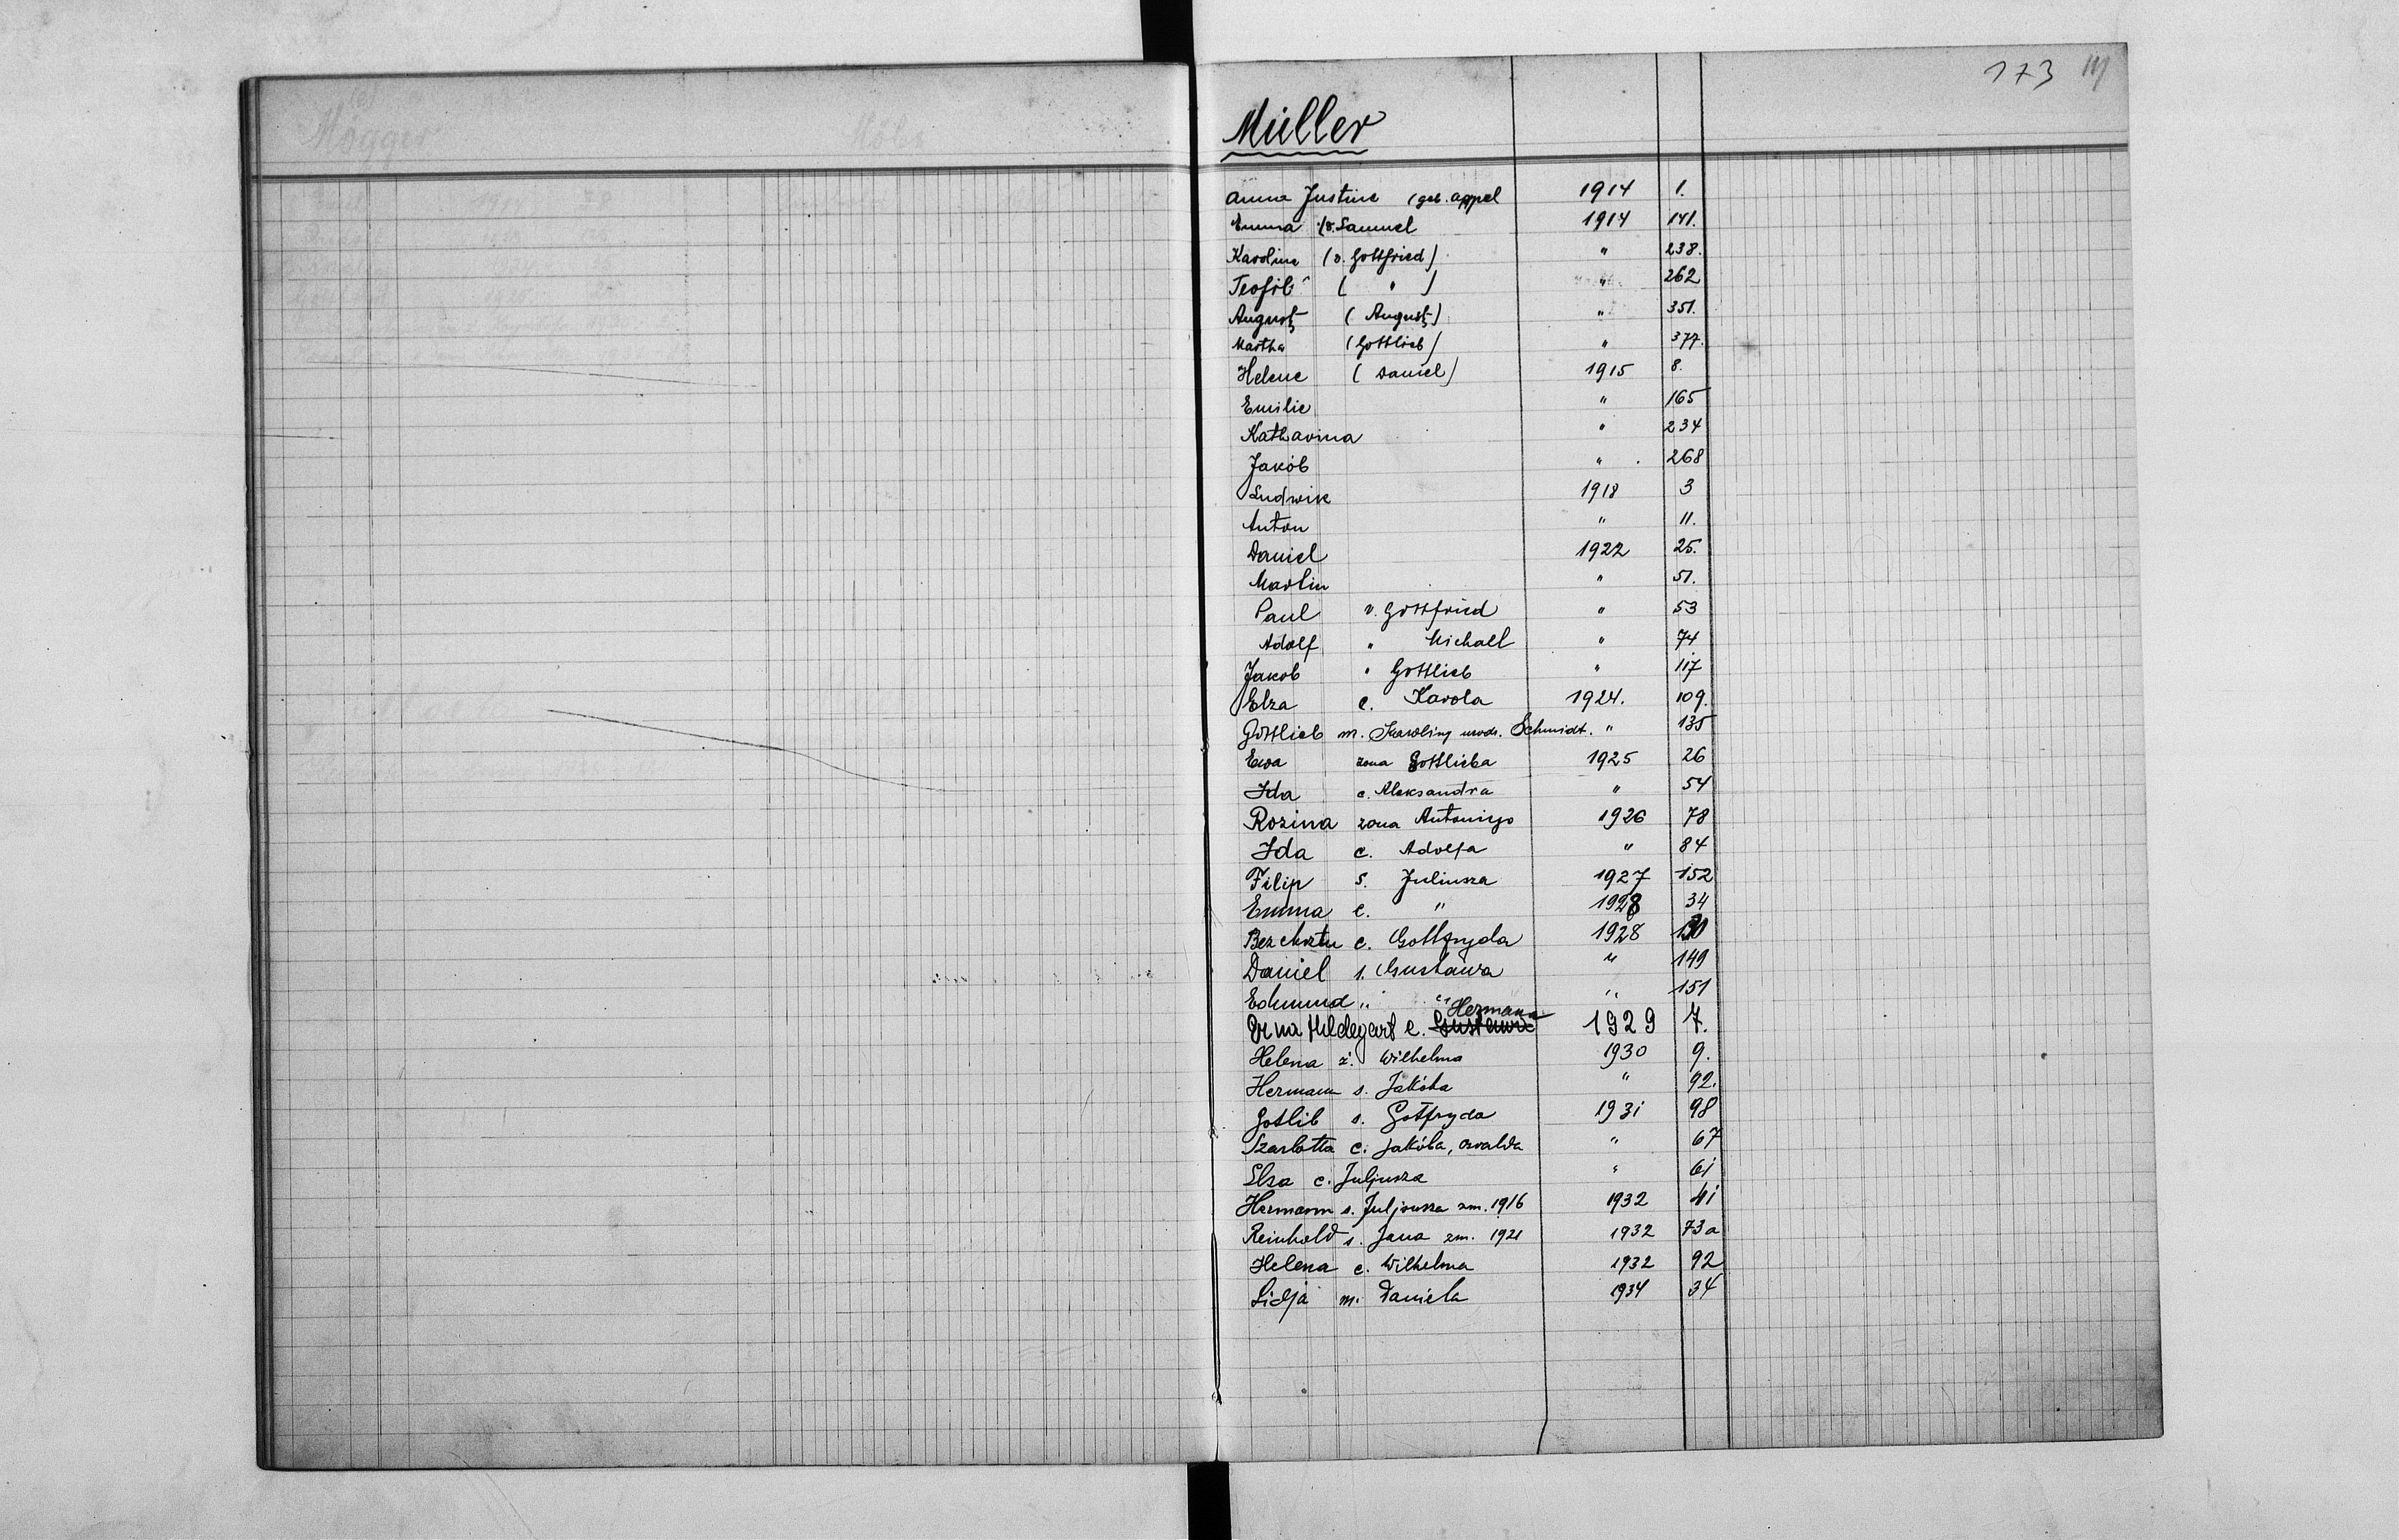 173
Müller
Anna Justine (geb. Appel 1914 1.
Emma (v. Samuel 1914 141.
Karoline (v. Gottfried) " 238.
Teofil ( " ) " 262
August (August) " 351.
Martha (Gottlieb) " 377.
Helene (Daniel) 1915 8.
Emilie " 165
Katharina " 234
Jakób " 268
Ludwik 1918 3
Anton " 11.
Daniel 1922 25.
Martin " 51.
Paul v. Gottfried " 53
Adolf " Michael " 74
Jakob " Gottlieb " 117
Elza c. Karola 1924. 109.
Gottlieb m. Karoliny urodz. Schmidt. " 135
Ewa żona Gottlieba 1925 26
Ida c. Aleksandra " 54
Rozina żona Antoniego 1926 78
Ida c. Adolfa " 84
Filip s. Juliusza 1927 152
Emma c. " 1928 34
Bez chrztu c. Gottfryda 1928
Daniel s. Gustawa " 149
Edmund " " " 151
Hermana
Erna Hildegart c. Gustawa 1929 7.
Helena ż. Wilhelma 1930 9.
Hermann s. Jakóba " 92.
Gotlib s. Gotfryda 1931 98
Szarlotta c. Jakóba, Oswalda " 67
Elsa c. Juljusza " 61
Hermann s. Juljusza zm. 1916 1932 41
Reinhold s. Jana zm. 1921 1932 73a
Helena c. Wilhelma 1932 92
Lidja m. Daniela 1934 34